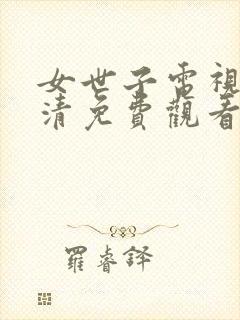 女世子電視
清免費觀看
羅睿鐸